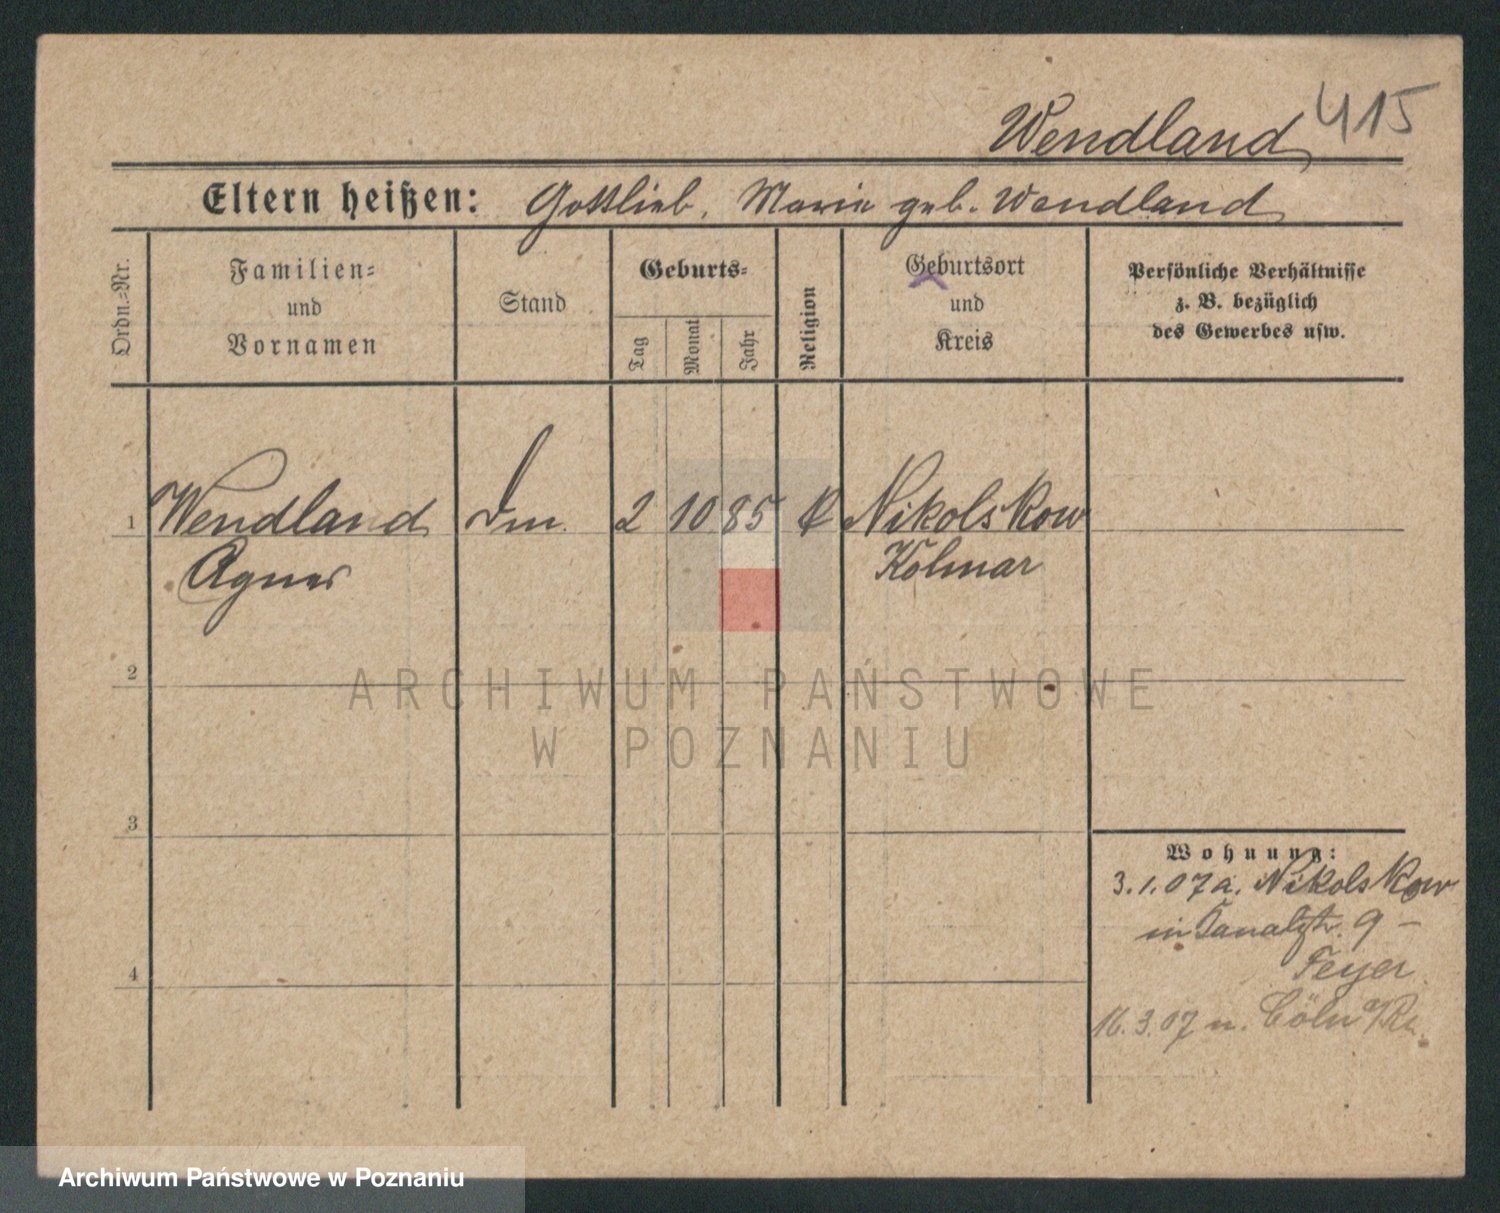 Wendland 415
Eltern heißen: Gottlieb, Marie geb. Wendland
Ordn.-Nr.
Familien-
und
Vornamen
Stand
Geburts-
Tag
Monat
Jahr
Religion
Geburtsort
und
Kreis
Persönliche Verhältnisse
z. B. bezüglich
des Gewerbes usw.
1 Wendland 2 10 85 Nikolskow
Agnes Kolmar
2
ARCHIWUM PAŃSTWOWE
W POZNANIU
3
Wohnung:
3.1.07 a. Nikolskow
in 9 –
4
Feyer
16.3.07 n. Cöln a/Rh.
Archiwum Państwowe w Poznaniu